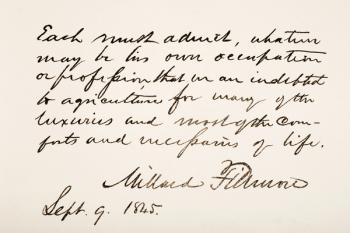 Each must admit, whatever
may be his own occupation
or profession, that we are indebted
to agriculture for many of the
luxuries and most of the com-
forts and necessaries of life.
Millard Fillmore
Sept. 9. 1845.